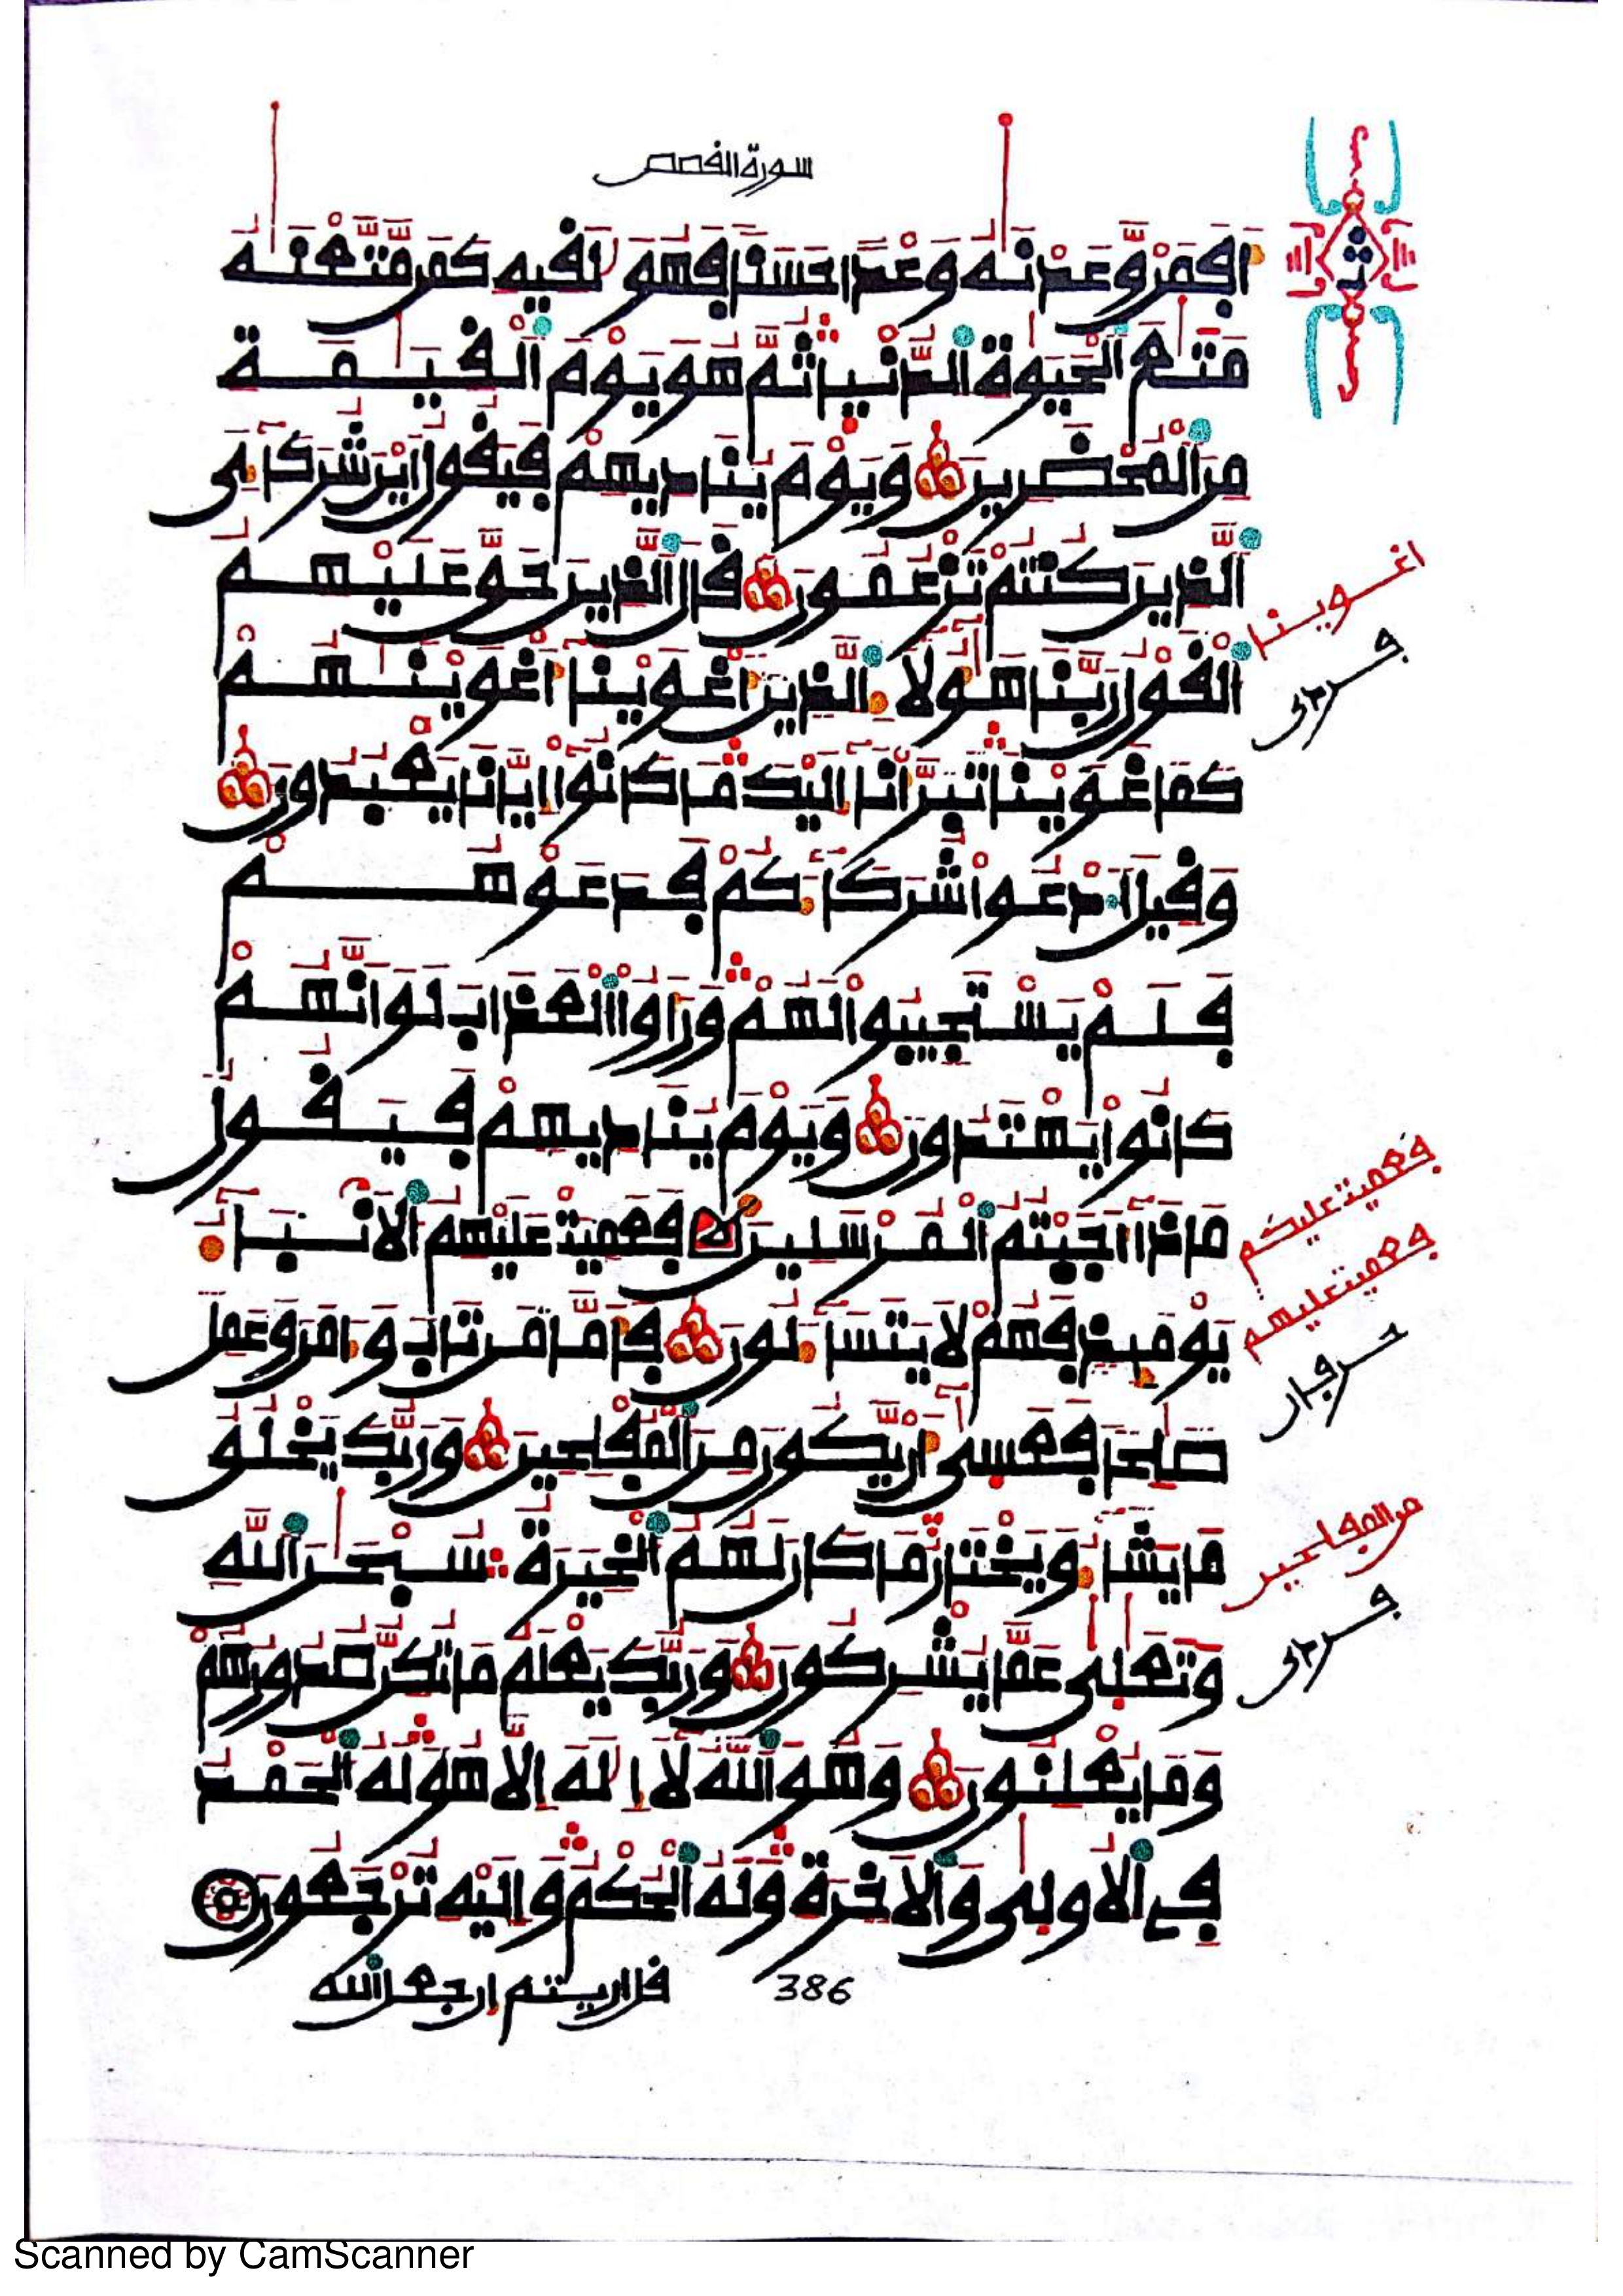 سورة القصص
افمن وعدنه وعدا حسنا فهو لقيه كمن متعنه
متع الحيوة الدنيا ثم هو يوم القيمة
من المحضرين ويوم يناديهم فيقول اين شركاءي
الذين كنتم تزعمون قال الذين حق عليهم
القول ربنا هولاء الذين اغوينا اغوينهم
كما غوينا تبرانا اليك ما كانوا ايانا يعبدون
وقيل ادعوا شركاءكم فدعوهم
فلم يستجيبوا لهم وراوا العذاب لو انهم
كانوا يهتدون ويوم يناديهم فيقول
ماذا اجبتم المرسلين فعميت عليهم الانباء
يومئذ فهم لا يتساءلون فاما من تاب وءامن وعمل
صلحا فعسى ان يكون من المفلحين وربك يخلق
ما يشاء ويختار ما كان لهم الخيرة سبحن الله
وتعلى عما يشركون وربك يعلم ما تكن صدورهم
وما يعلنون وهو الله لا اله الا هو له الحمد
في الاولى والاخرة وله الحكم واليه ترجعون
386
قل اريتم ان جعل الله
ث
اغوينا
فعميت عليكم
فعميت عليهم
من المفلحين
Scanned by CamScanner